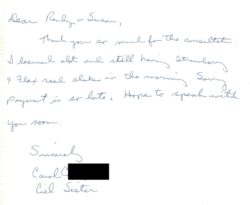 Dear Randy & Susan,
Thank you so much for the consultation.
I learned alot and still having Strawberry
& Flax seed shake in the morning Sorry
payment is so late. Hope to speak with
you soon.
Sincerely
Carol C